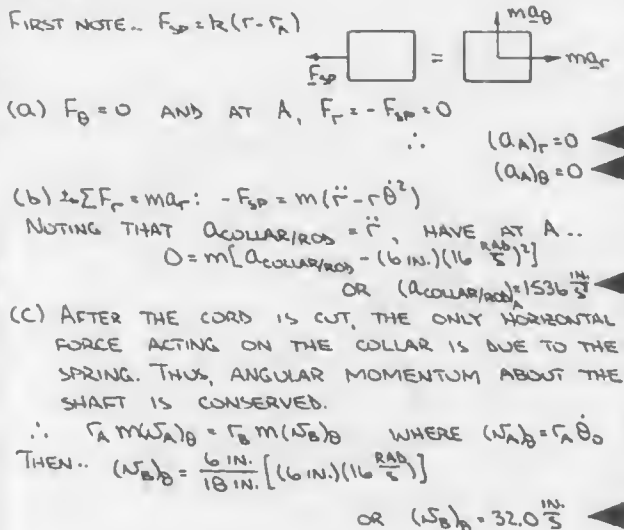 FIRST NOTE.. F_SP = k(r - r_A)
F_SP = ma_θ ma_r
(a) F_θ = 0 AND AT A, F_r = - F_SP = 0
∴ (a_A)_r = 0
(a_A)_θ = 0
(b) ΣF_r = ma_r: - F_SP = m(r̈ - rθ̇²)
NOTING THAT a_COLLAR/ROD = r̈, HAVE AT A..
0 = m[a_COLLAR/ROD - (6 IN.)(16 RAD/S)²]
OR (a_COLLAR/ROD)_A = 1536 IN./S
(C) AFTER THE CORD IS CUT, THE ONLY HORIZONTAL
FORCE ACTING ON THE COLLAR IS DUE TO THE
SPRING. THUS, ANGULAR MOMENTUM ABOUT THE
SHAFT IS CONSERVED.
∴ r_A m(v_A)_θ = r_B m(v_B)_θ WHERE (v_A)_θ = r_A θ̇_0
THEN.. (v_B)_θ = 6 IN./18 IN. [(6 IN.)(16 RAD/S)]
OR (v_B)_θ = 32.0 IN./S